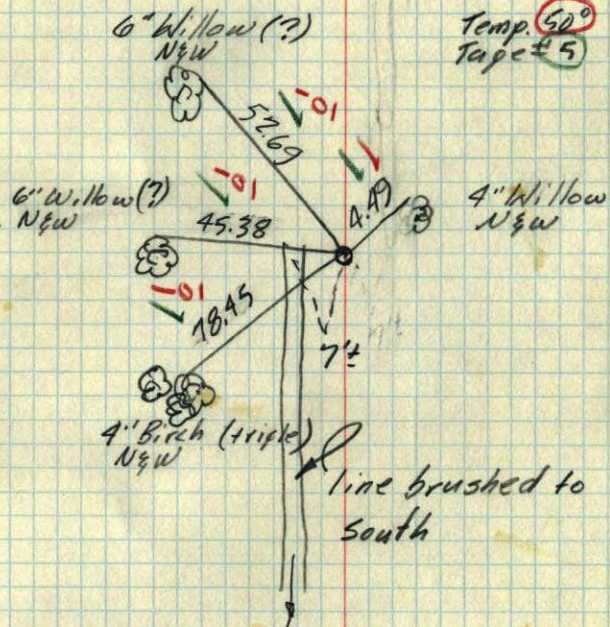 6" Willow (?)
N&W
Temp. 50°
Tape # 5
-01
52.69
6" Willow (?)
N&W
-01
45.38
4.49
4" Willow
N&W
-01
18.45
7'±
4" Birch (triple)
N&W
line brushed to
South